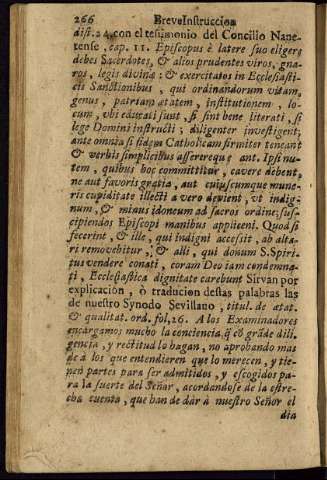 266 Breve Instruccion
dist. 24. con el testimonio del Concilio Nane-
tense, cap. 11. Episcopus è latere suo eligere
debet Sacerdotes, & alios prudentes viros, gna-
ros, legis divinæ: & exercitatos in Ecclesiasti-
cis Sanctionibus, qui ordinandorum vitam,
genus, patriam ætatem, institutionem, lo-
cum, vbi educati sunt, si sint bene literati, si
lege Domini instructi, diligenter investigent,
ante omnia si fidem Catholicam firmiter teneant
& verbis simplicibus asserereque ant. Ipsi au-
tem, quibus hoc committitur, cavere debent,
ne aut favoris gratia, aut cuiuscumque mune-
ris cupiditate illecti a vero devient, vt indig-
num, & minus idoneum ad sacros ordines sus-
cipiendos Episcopi manibus applicent. Quod si
fecerint, & ille, qui indigni accessit, ab alta-
ri removebitur, & alli, qui donum S. Spiri-
tus vendere conati, coram Deo iam condemna-
ti, Ecclesiastica dignitate carebunt Sirvan por
explicación, ò traducion destas palabras las
de nuestro Synodo Sevillano, titul. de ætat.
& qualitat. ord. fol. 26. A los Examinadores
encargamos mucho la conciencia, q̃ cõ grãde dili-
gencia, y rectitud lo hagan, no aprobando mas
de à los que entendieren que lo merecen, y tie-
nen partes para ser admitidos, y escogidos pa-
ra la suerte del Señor, acordandose de la estre-
cha cuenta, que han de dàr à nuestro Señor el
dia